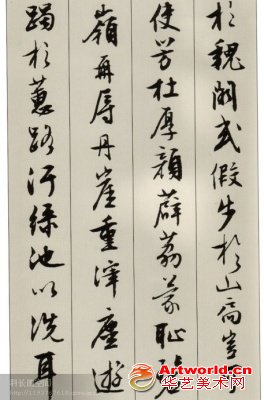 於魏闕或假步於山喬豈
使芳杜厚顏薜荔蒙恥碧
嶺再辱丹崖重滓塵遊
躅於蕙路汙綠池以洗耳
Artworld.cn
华艺美术网